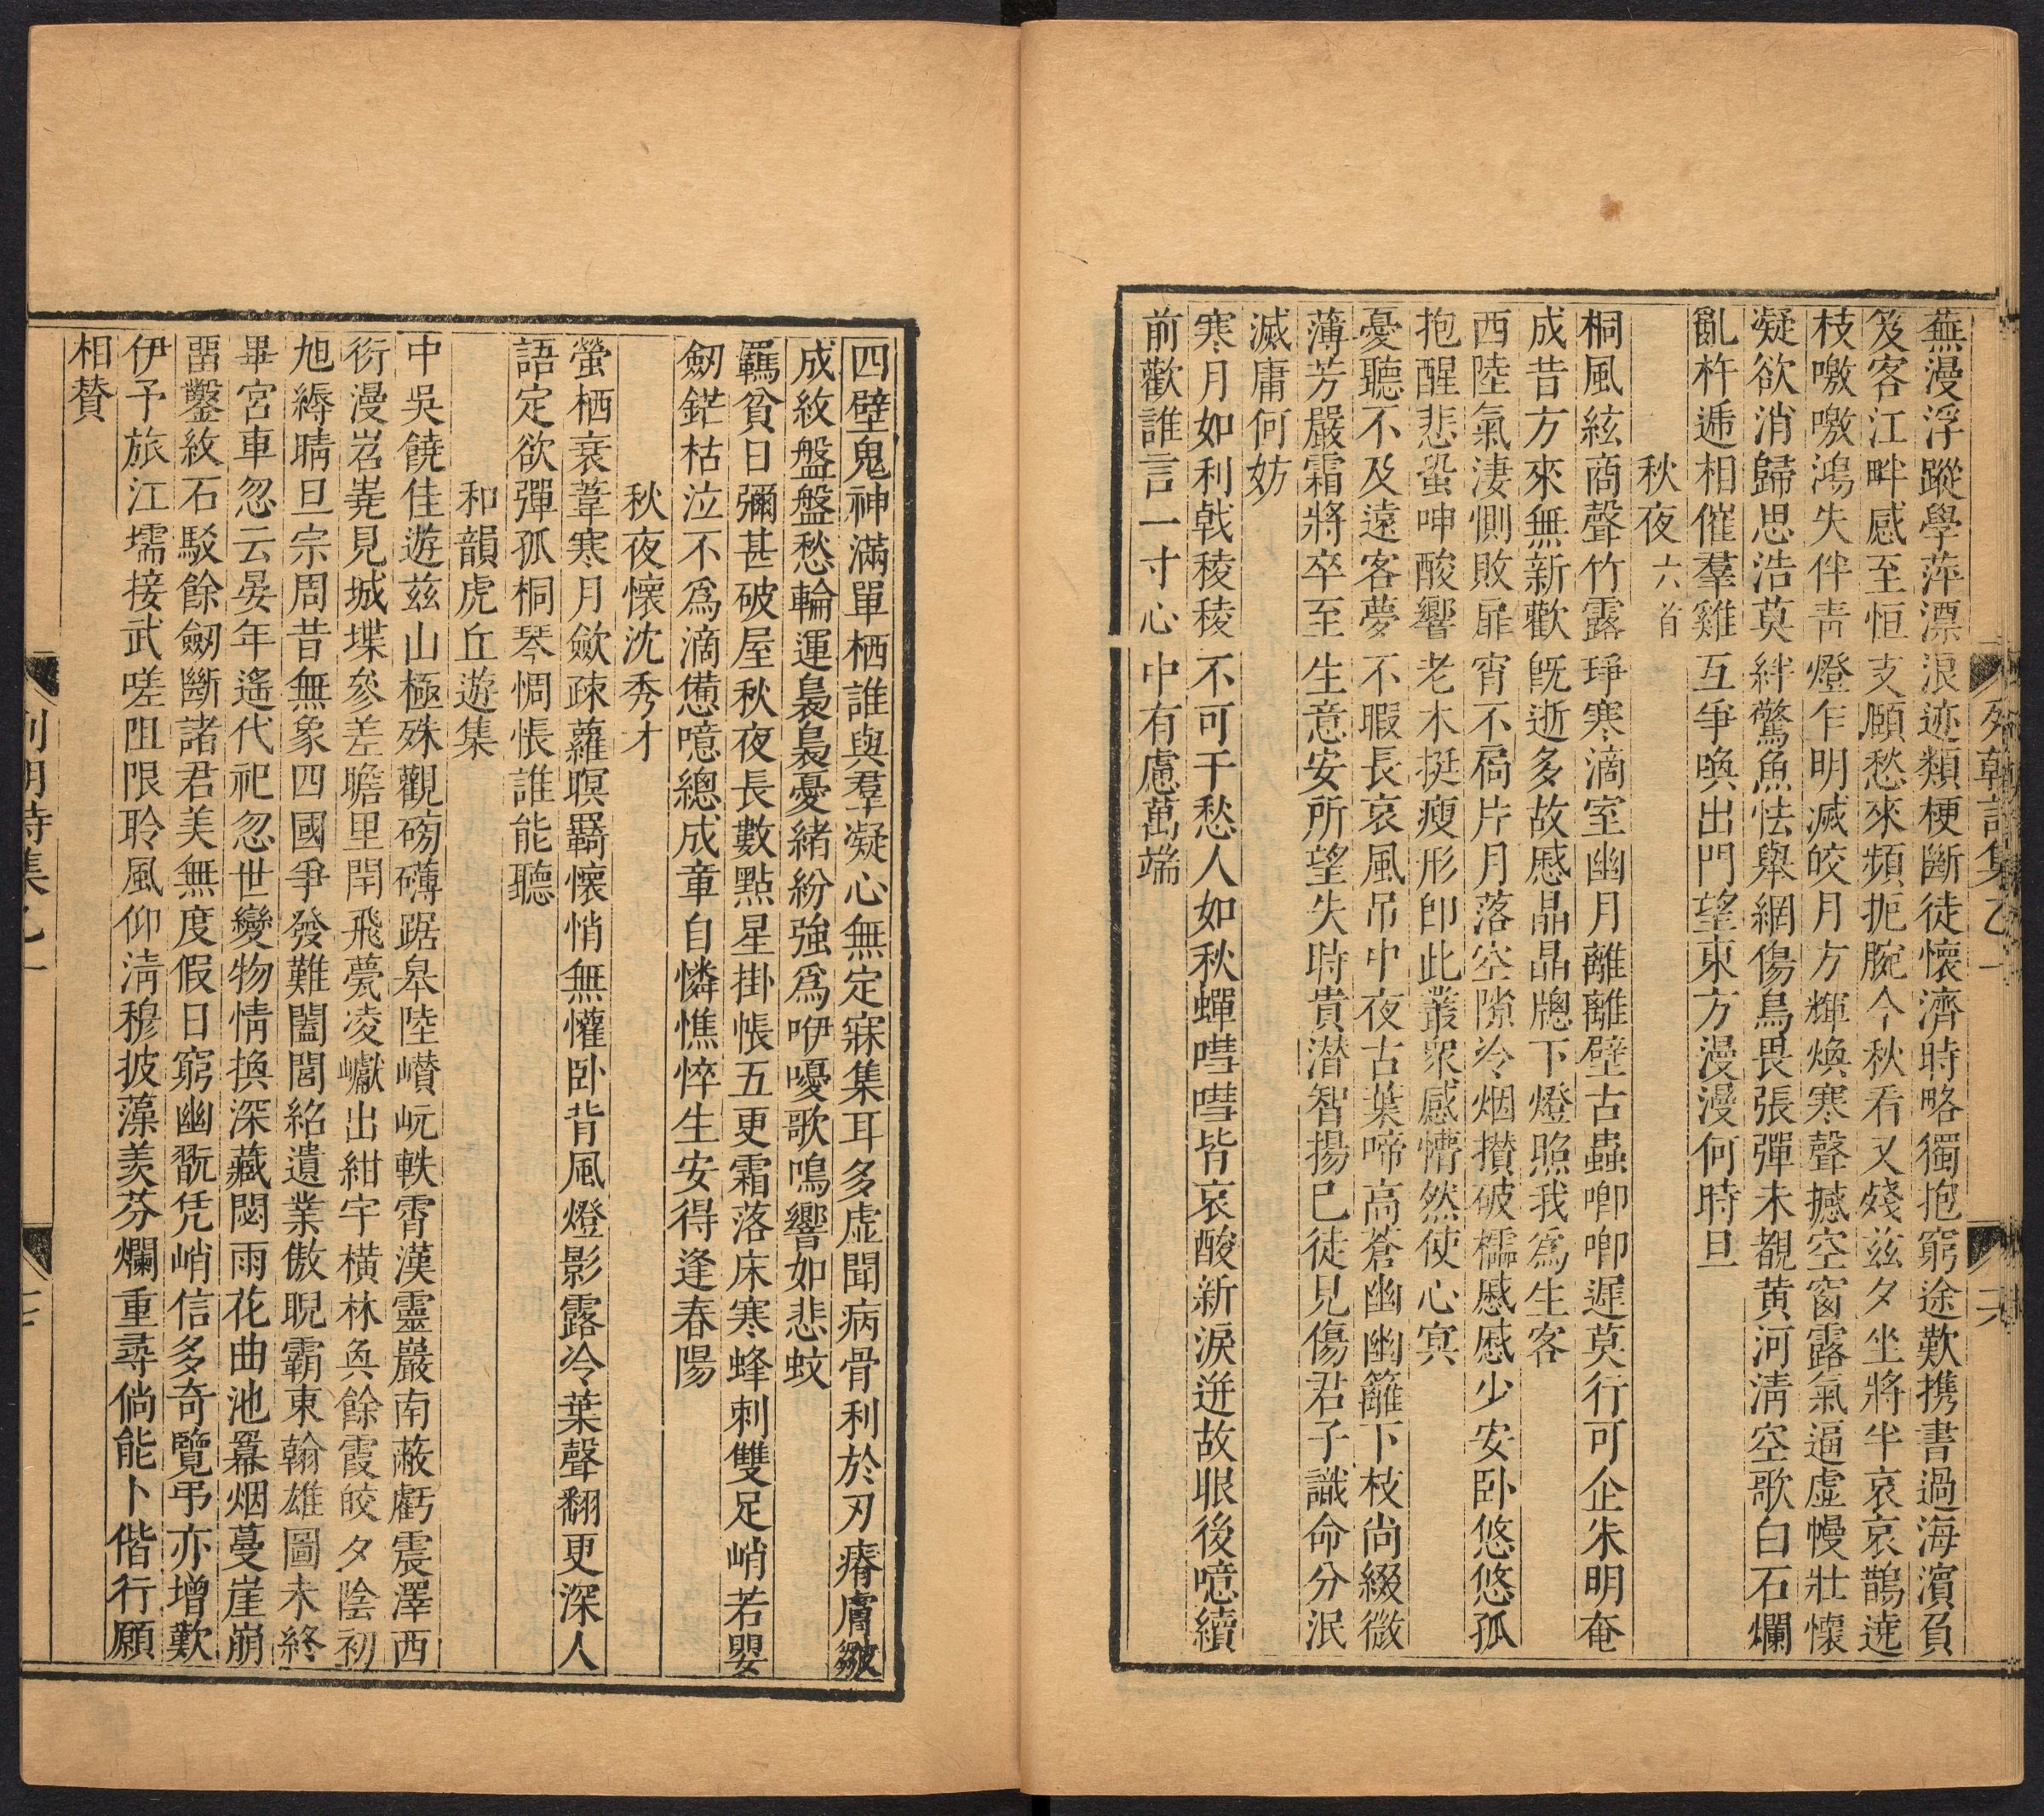 蕪漫浮蹤學萍漂浪迹類梗斷徒懷濟時略獨抱窮途歎携書過海濱負
笈客江畔感至恒支願愁來頻扼腕今秋看又殘兹夕坐將半哀哀鵲遶
枝噭噭鴻失伴靑燈乍明滅皎月方輝煥寒聲撼空窗露氣逼虛幔壯懷
凝欲消歸思浩莫絆驚魚怯舉網傷鳥畏張彈未覩黄河淸空歌白石爛
亂杵遞相催羣雞互爭喚出門望東方漫漫何時旦
秋夜六首
桐風絃商聲竹露琤寒滴室幽月離離壁古蟲喞喞遲莫行可企朱明奄
成昔方來無新歡旣逝多故慼晶晶牕下燈照我爲生客
西陸氣淒惻敗扉宵不扃片月落空隙冷烟攢破櫺慼慼少安卧悠悠孤
抱醒悲蛩呻酸響老木挺瘦形卽此叢衆感慒然使心冥
憂聽不及遠客夢不暇長哀風吊中夜古葉啼高蒼幽幽籬下枝尚綴微
薄芳嚴霜將卒至生意安所望失時貴潛智揚已徒見傷君子識命分泯
滅庸何妨
寒月如利戟稜稜不可干愁人如秋蟬嘒嘒皆哀酸新淚迸故眼後噫續
前歡誰言一寸心中有慮萬端
列朝詩集乙一
六
四壁鬼神滿單栖誰與羣凝心無定寐集耳多虛聞病骨利於刃瘠膚皴
成紋盤盤愁輪運裊裊憂緒紛強爲咿嚘歌鳴響如悲蚊
羈貧日彌甚破屋秋夜長數點星掛帳五更霜落床寒蜂刺雙足峭若嬰
劒鋩枯泣不爲滴憊噫總成章自憐憔悴生安得逢春陽
秋夜懷沈秀才
螢栖衰葦寒月歛疎蘿暝羇懷悄無懽卧背風燈影露冷葉聲翻更深人
語定欲彈孤桐琴惆悵誰能聽
和韻虎丘遊集
中吳饒佳遊兹山極殊觀磅礴踞皋陸巑岏軼霄漢靈巖南蔽虧震澤西
衍漫岧嶤見城堞參差瞻里閈飛甍凌巘出紺宇橫林奐餘霞皎夕陰初
旭縟晴旦宗周昔無象四國爭發難闔閭紹遺業傲睨霸東翰雄圖未終
畢宮車忽云晏年遙代祀忽世變物情換深藏閟雨花曲池羃烟蔓崖崩
畱鑿紋石駁餘劒斷諸君美無度假日窮幽翫凭峭信多奇覽弔亦增歎
伊予旅江壖接武嗟阻限聆風仰淸穆披藻羨芬爛重尋倘能卜偕行願
相贊
列朝詩集乙一
七